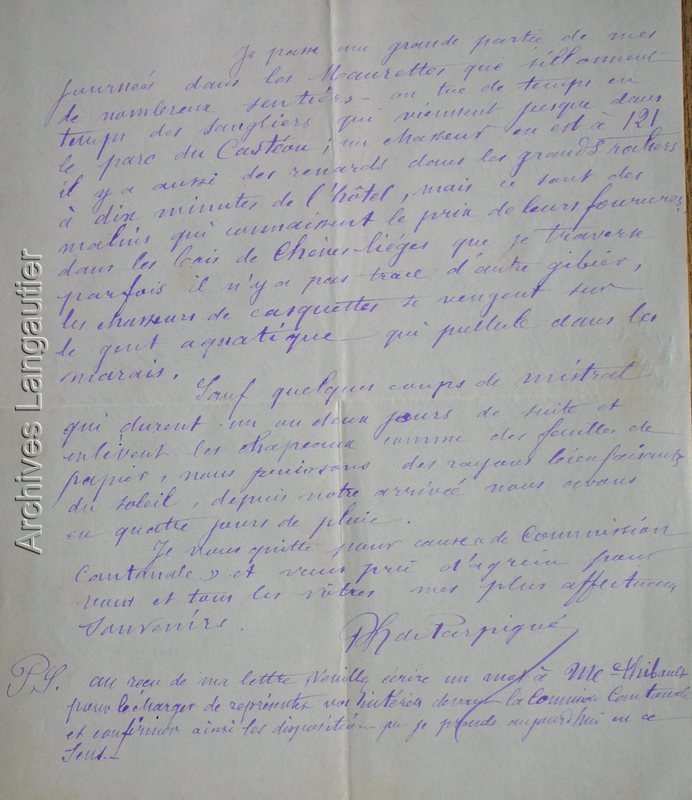 Je passe une grande partie de mes
journées dans les Maurettes que sillonnent
de nombreux sentiers - on tue de temps en
temps des sangliers qui viennent jusque dans
le parc du Castéou ; un chasseur en est à 121
il y a aussi des renards dans les grands rochers
à dix minutes de l'hôtel, mais ce sont des
malins qui connaissent le prix de leurs fourures.
dans les bois de Chênes-liéges que je traverse
parfois il n'y a pas trace d'autre gibier,
les chasseurs de casquettes se vengent sur
le gent aquatique qui pullule dans les
marais.
Sauf quelques coups de mistral
qui durent un ou deux jours de suite et
enlèvent les chapeaux comme des feuilles de
papier, nous jouissons des rayons bienfaisants
du soleil, depuis notre arrivée nous avons
eu quatre jours de pluie.
Je vous quitte pour cause de Commission
Cantonale » et vous prie d'agréer pour
vous et tous les vôtres mes plus affectueux
Souvenirs.
Ph de
P.S. au reçu de ma lettre Veuillez écrire un mot à Me Thibault
pour le charger de représenter vos intérêts devant la Commission Cantonale
et confirmer ainsi les dispositions que je prends aujourd'hui en ce
Sens -
Archives Langautier